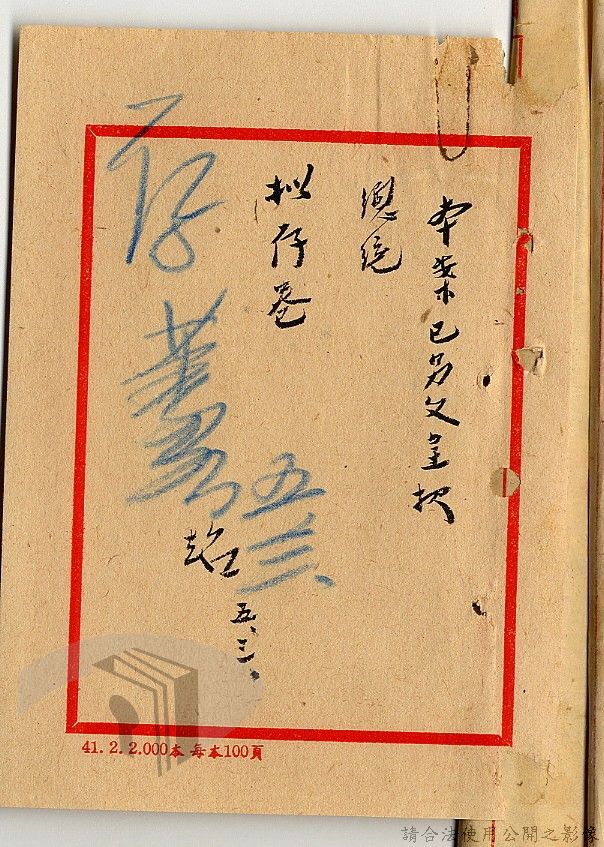 本案已另文呈报
總統
拟存卷
五、三、
存
五
三、
41. 2. 2.000本 每本100頁
請合法使用公開之影像